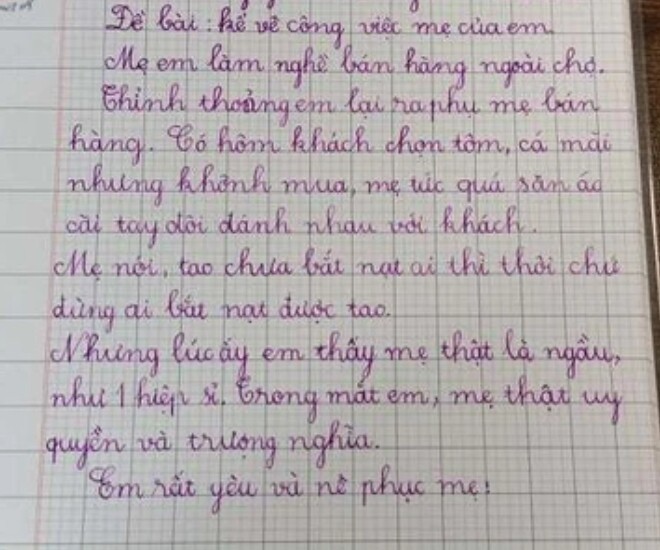 Đề bài: kể về công việc mẹ của em.
Mẹ em làm nghề bán hàng ngoài chợ.
Thỉnh thoảng em lại ra phụ mẹ bán
hàng. Có hôm khách chọn tôm, cá mãi
nhưng không mua, mẹ tức quá săn áo
cãi tay đôi đánh nhau với khách.
Mẹ nói, tao chưa bắt nạt ai thì thôi chứ
đừng ai bắt nạt được tao.
Nhưng lúc ấy em thấy mẹ thật là ngầu,
như 1 hiệp sĩ. Trong mắt em, mẹ thật uy
quyền và trượng nghĩa.
Em rất yêu và nể phục mẹ!